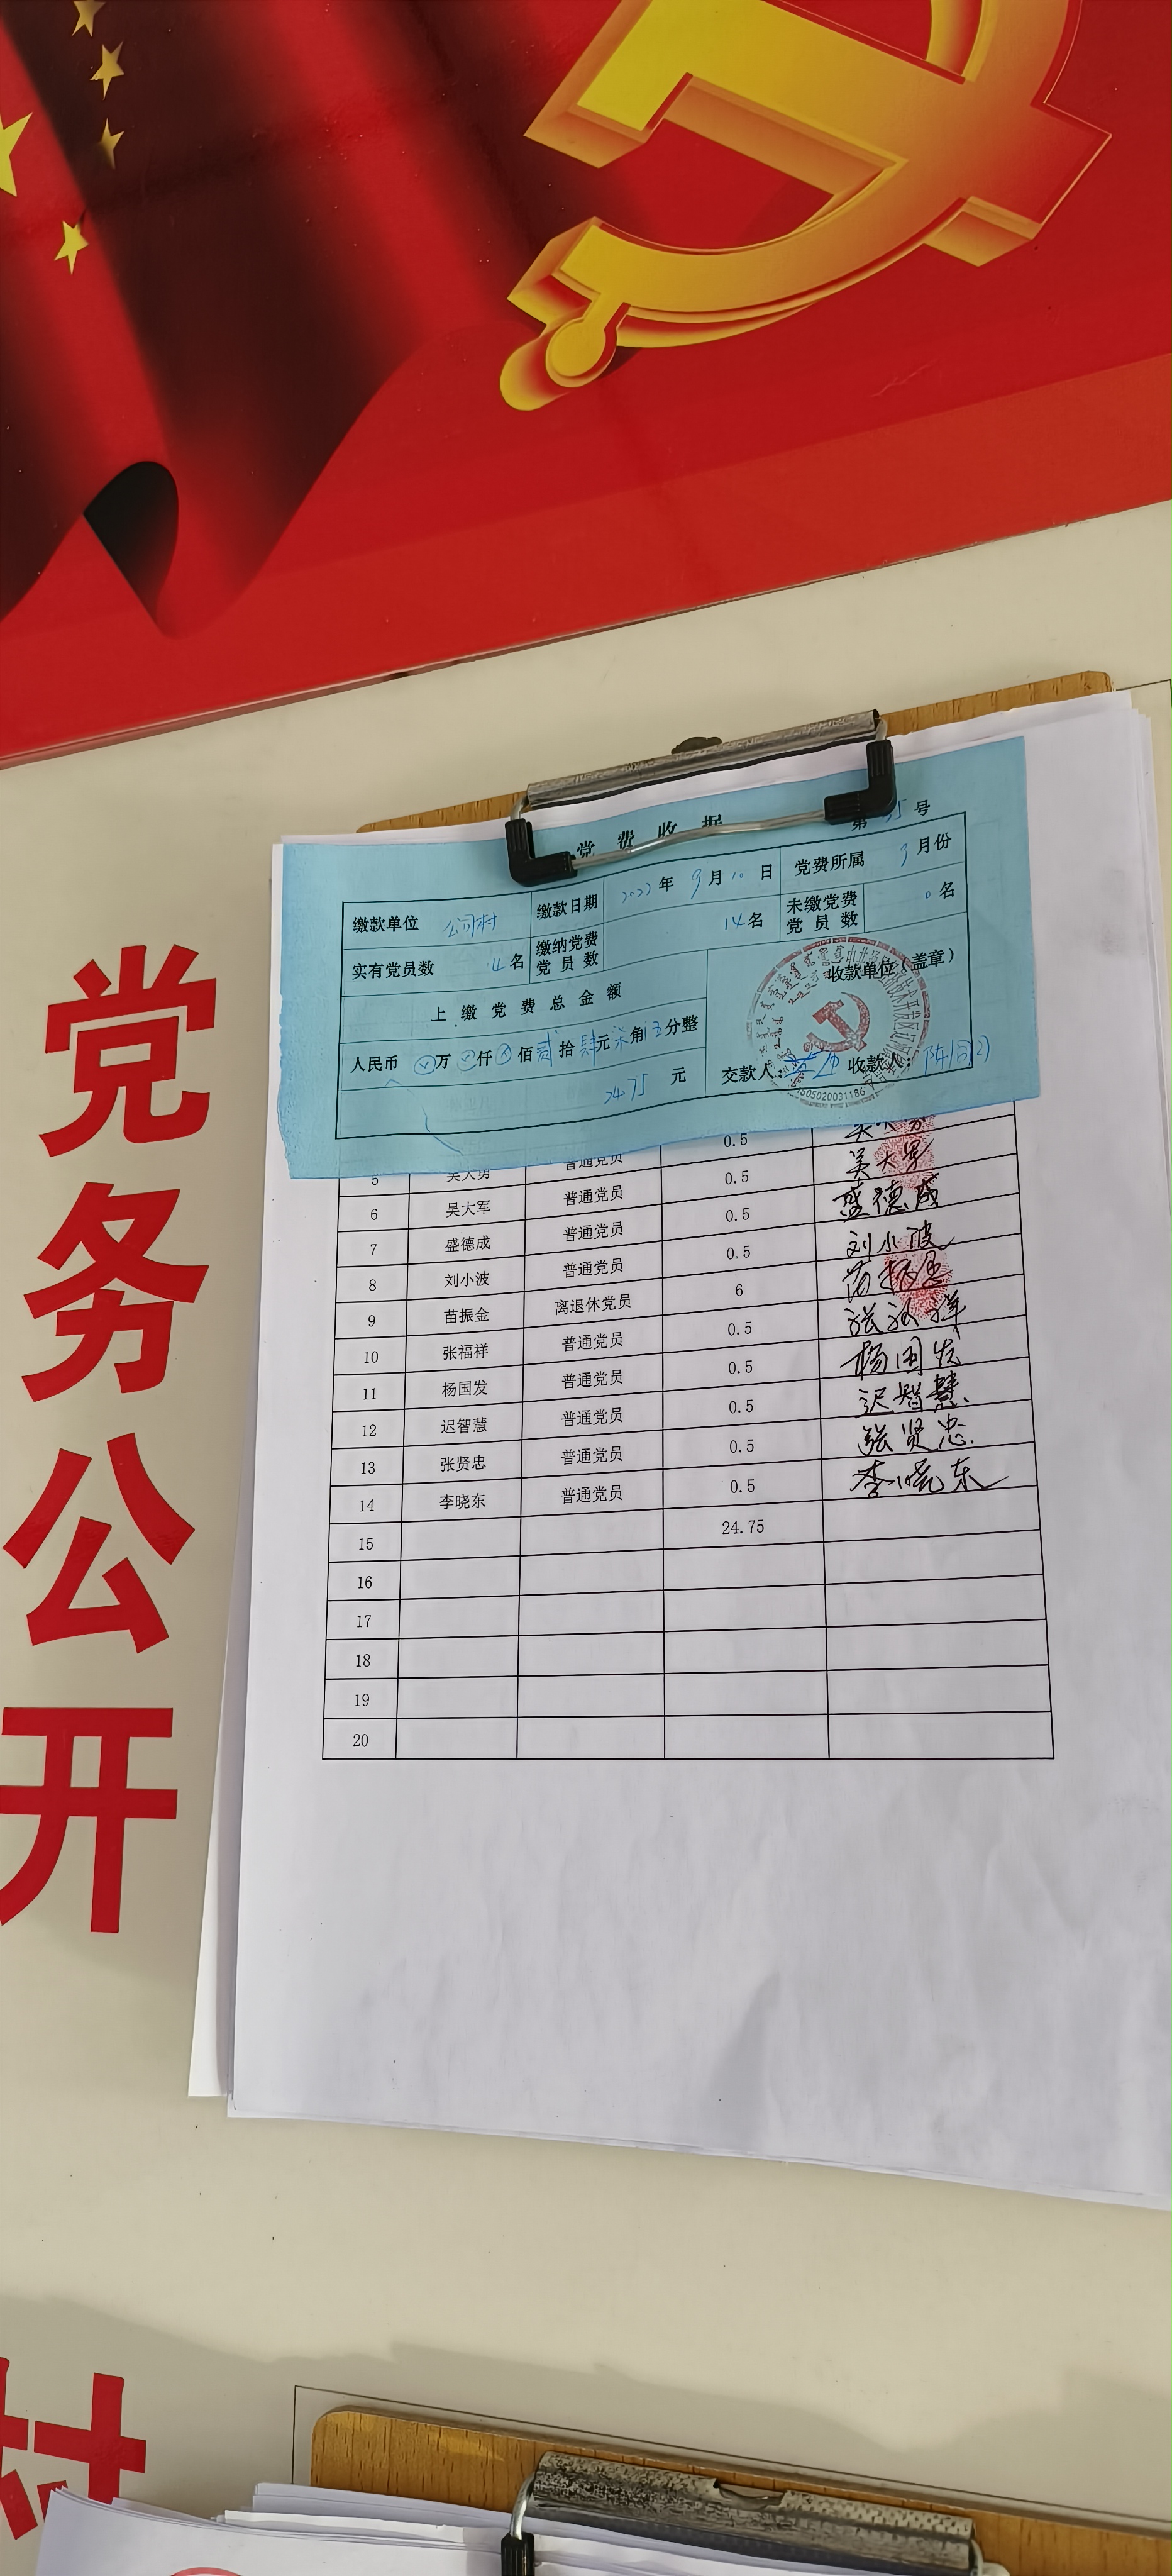 党务公开
村
党费收据
第 35 号
缴款单位 公司村 缴款日期 2022年9月10日 党费所属 9月份
实有党员数 14名 缴纳党费党员数 14名 未缴党费党员数 0名
上缴党费总金额
收款单位(盖章)
人民币 万 仟 佰贰拾肆元柒角伍分整
24.75 元
交款人: 收款人:
1505020031186
0.5
5 吴大勇 普通党员 0.5 吴大勇
6 吴大军 普通党员 0.5 吴大军
7 盛德成 普通党员 0.5 盛德成
8 刘小波 普通党员 0.5 刘小波
9 苗振金 离退休党员 6 苗振金
10 张福祥 普通党员 0.5 张福祥
11 杨国发 普通党员 0.5 杨国发
12 迟智慧 普通党员 0.5 迟智慧
13 张贤忠 普通党员 0.5 张贤忠
14 李晓东 普通党员 0.5 李晓东
15 24.75
16
17
18
19
20